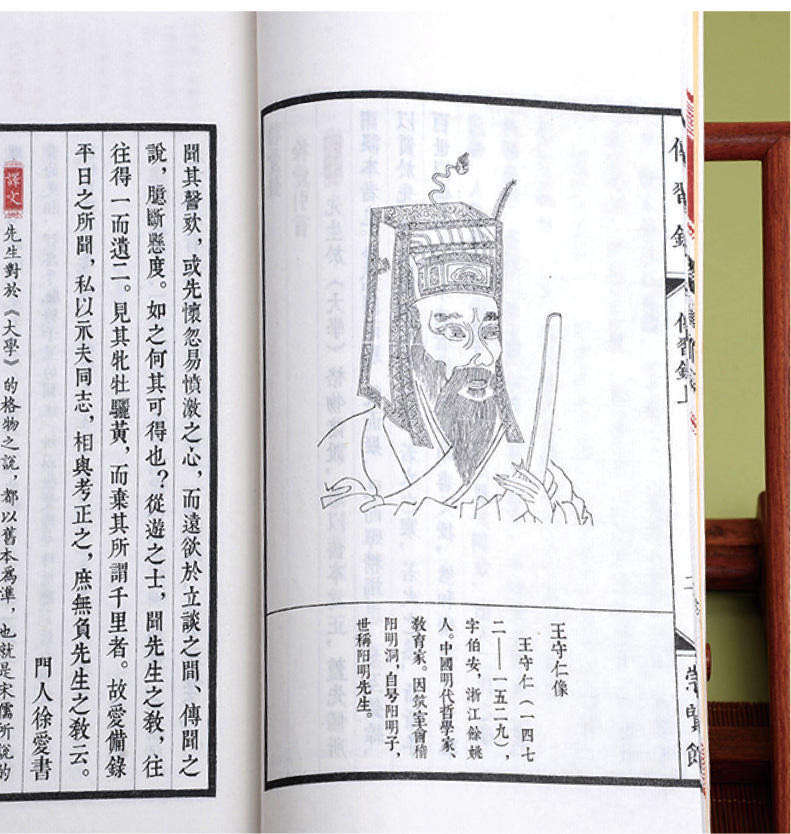 傳習錄
傳習錄
崇賢館
王守仁像
王守仁（一四七
二——一五二九），
字伯安，浙江餘姚
人。中國明代哲學家、
敎育家。因筑室會稽
阳明洞，自号阳明子，
世稱阳明先生。
聞其謦欬，或先懷忽易憤激之心，而遠欲於立談之間、傳聞之
說，臆斷懸度。如之何其可得也？從遊之士，聞先生之敎，往
往得一而遺二。見其牝牡驪黃，而棄其所謂千里者。故愛備錄
平日之所聞，私以示夫同志，相與考正之，庶無負先生之敎云。
門人徐愛書
譯文
先生對於《大學》的格物之說，都以舊本爲準，也就是宋儒所說的